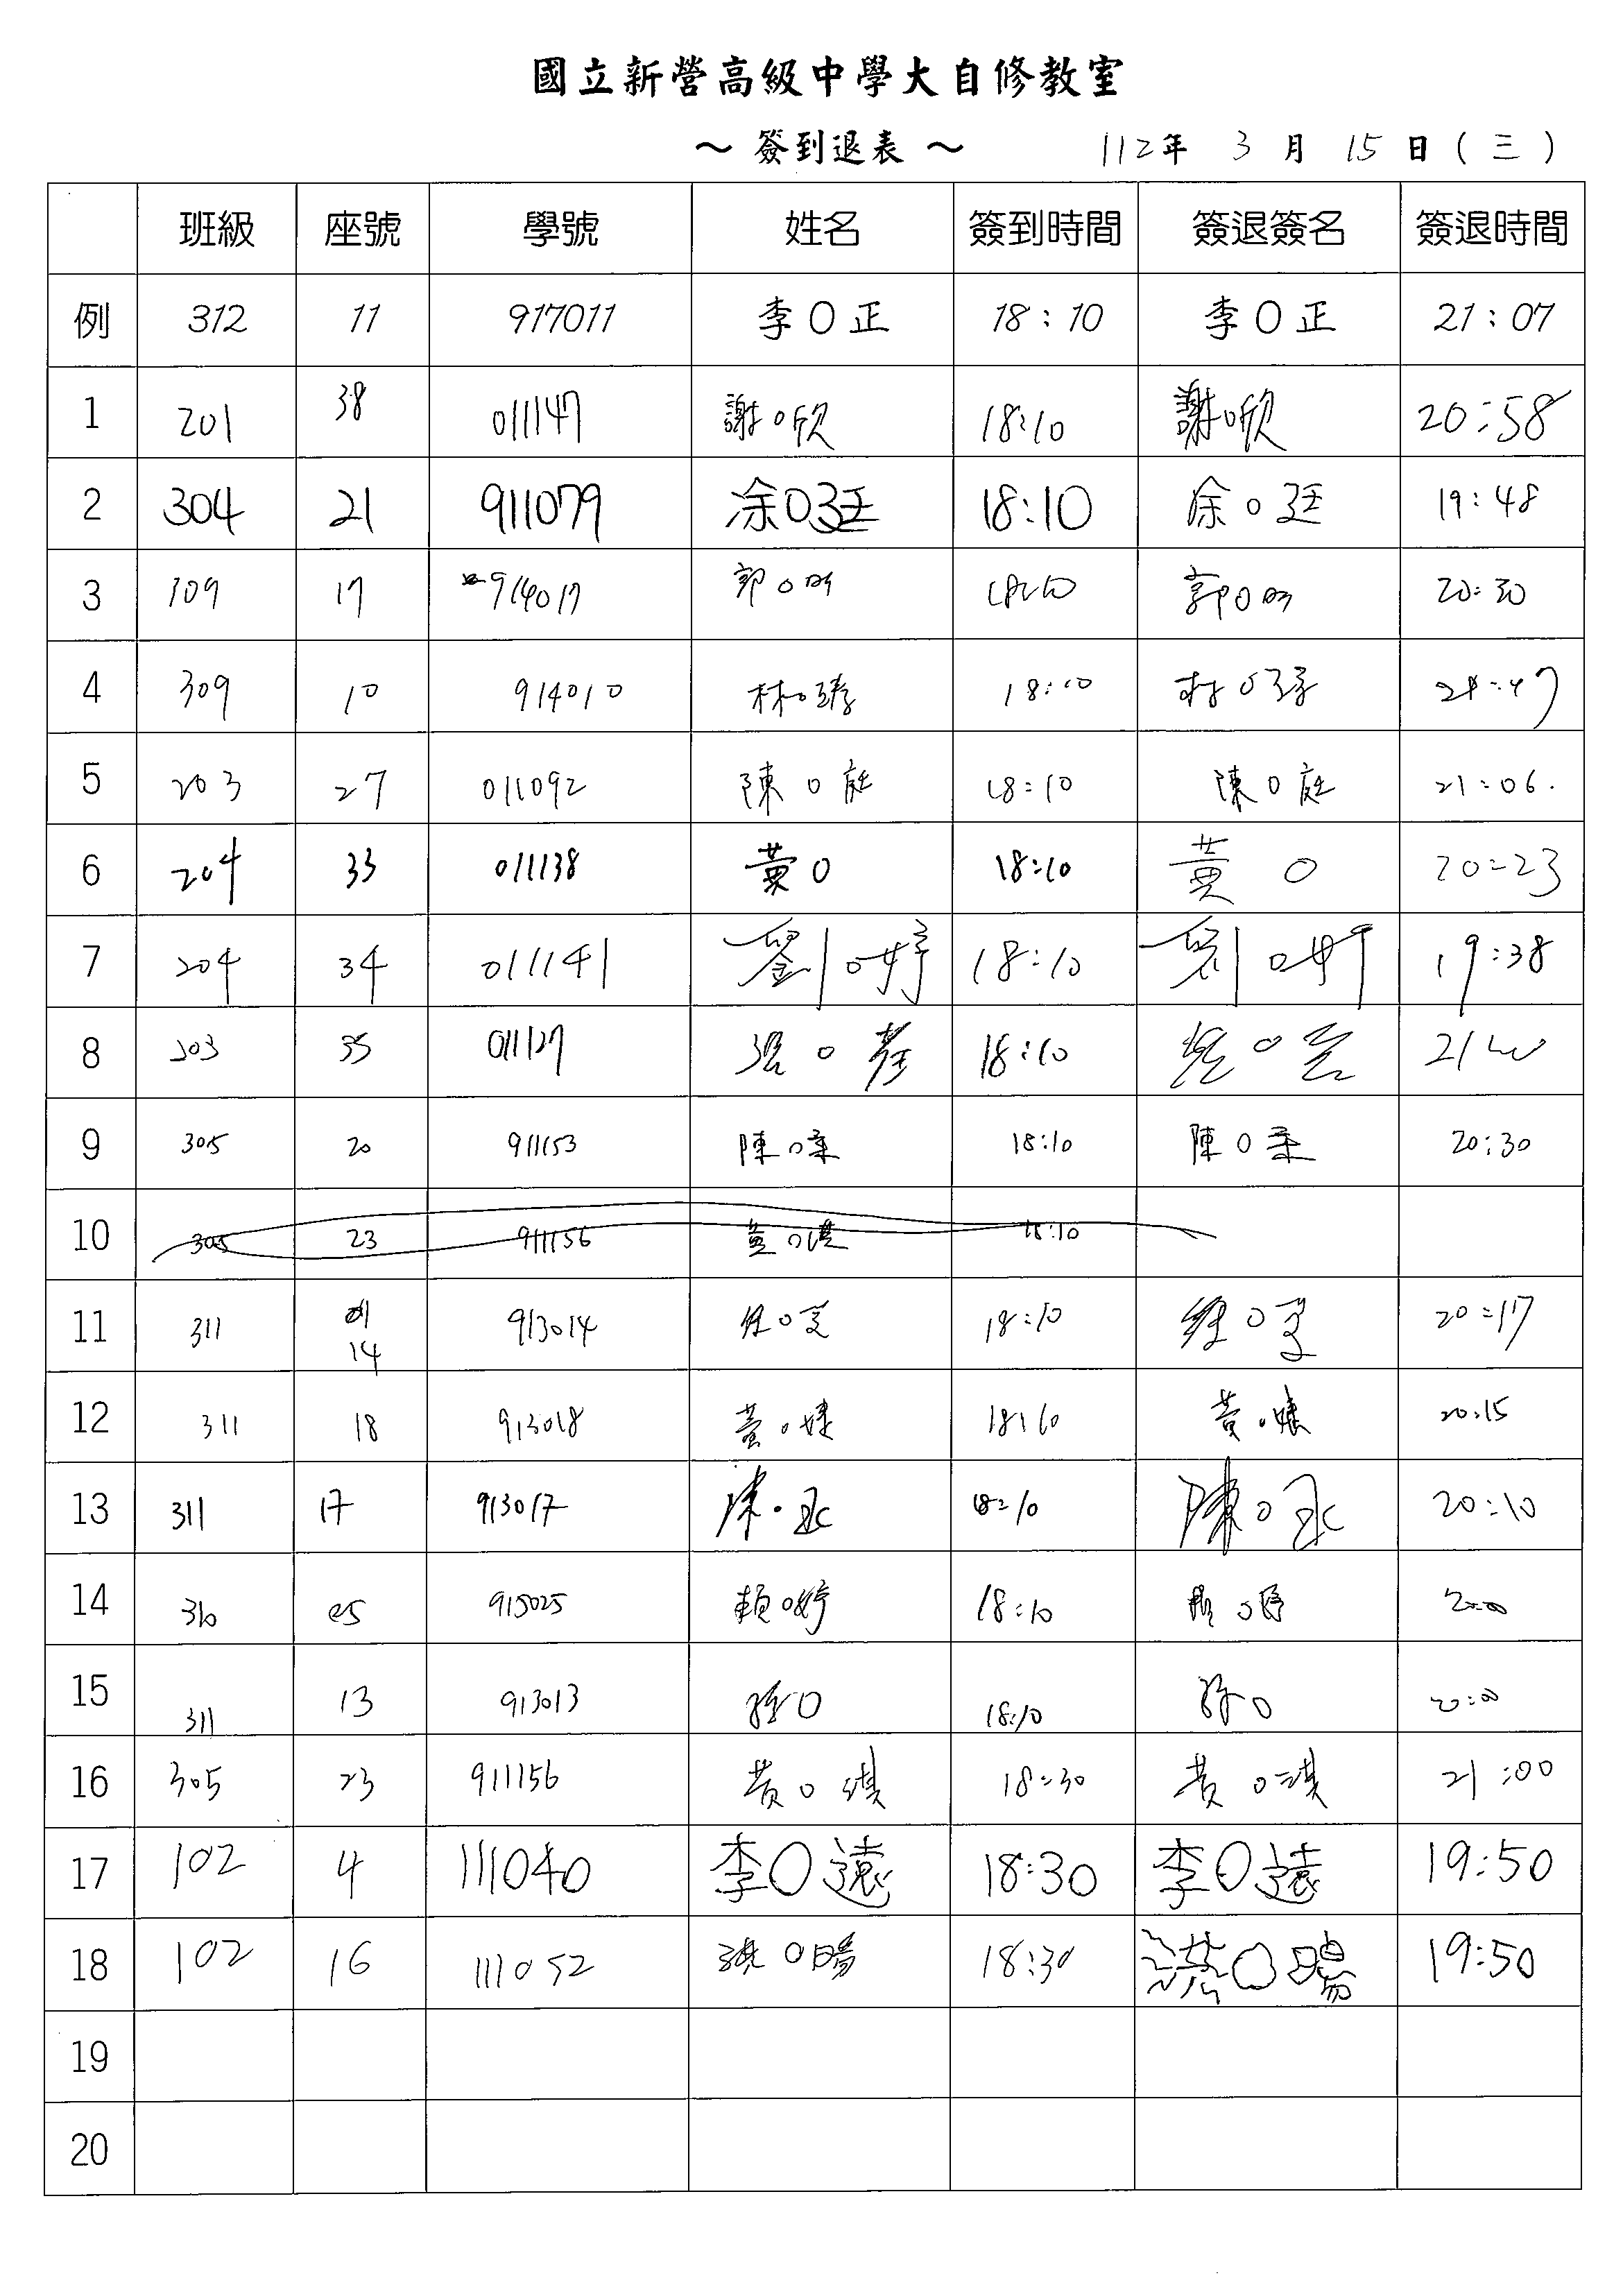 國立新營高級中學大自修教室
～ 簽到退表 ～ 112年 3 月 15 日 ( 三 )
班級 座號 學號 姓名 簽到時間 簽退簽名 簽退時間
例 312 11 917011 李O正 18:10 李O正 21:07
1 201 38 011147 謝O欣 18:10 謝O欣 20:58
2 304 21 911079 涂O廷 18:10 涂O廷 19:48
3 309 17 914017 郭O昀 18:10 郭O昀 20:30
4 309 10 914010 林O 18:10 林O
5 203 27 011092 陳O庭 18:10 陳O庭 21:06.
6 204 33 011138 黃O 18:10 黃O 20:23
7 204 34 011141 劉O婷 18:10 劉O婷 19:38
8 203 35 011127 O 18:10 O
9 305 20 911153 陳O柔 18:10 陳O柔 20:30
10 305 23 911156 黃O淇 18:10
11 311 14 913014 O 18:10 O 20:17
12 311 18 913018 黃O 18:10 黃O 20:15
13 311 17 913017 陳O 18:10 陳O 20:10
14 310 25 915025 賴O婷 18:10 O
15 311 13 913013 O 18:10 O 20:00
16 305 23 911156 黃O淇 18:30 黃O淇 21:00
17 102 4 111040 李O遠 18:30 李O遠 19:50
18 102 16 111052 洪O暘 18:30 洪O暘 19:50
19
20